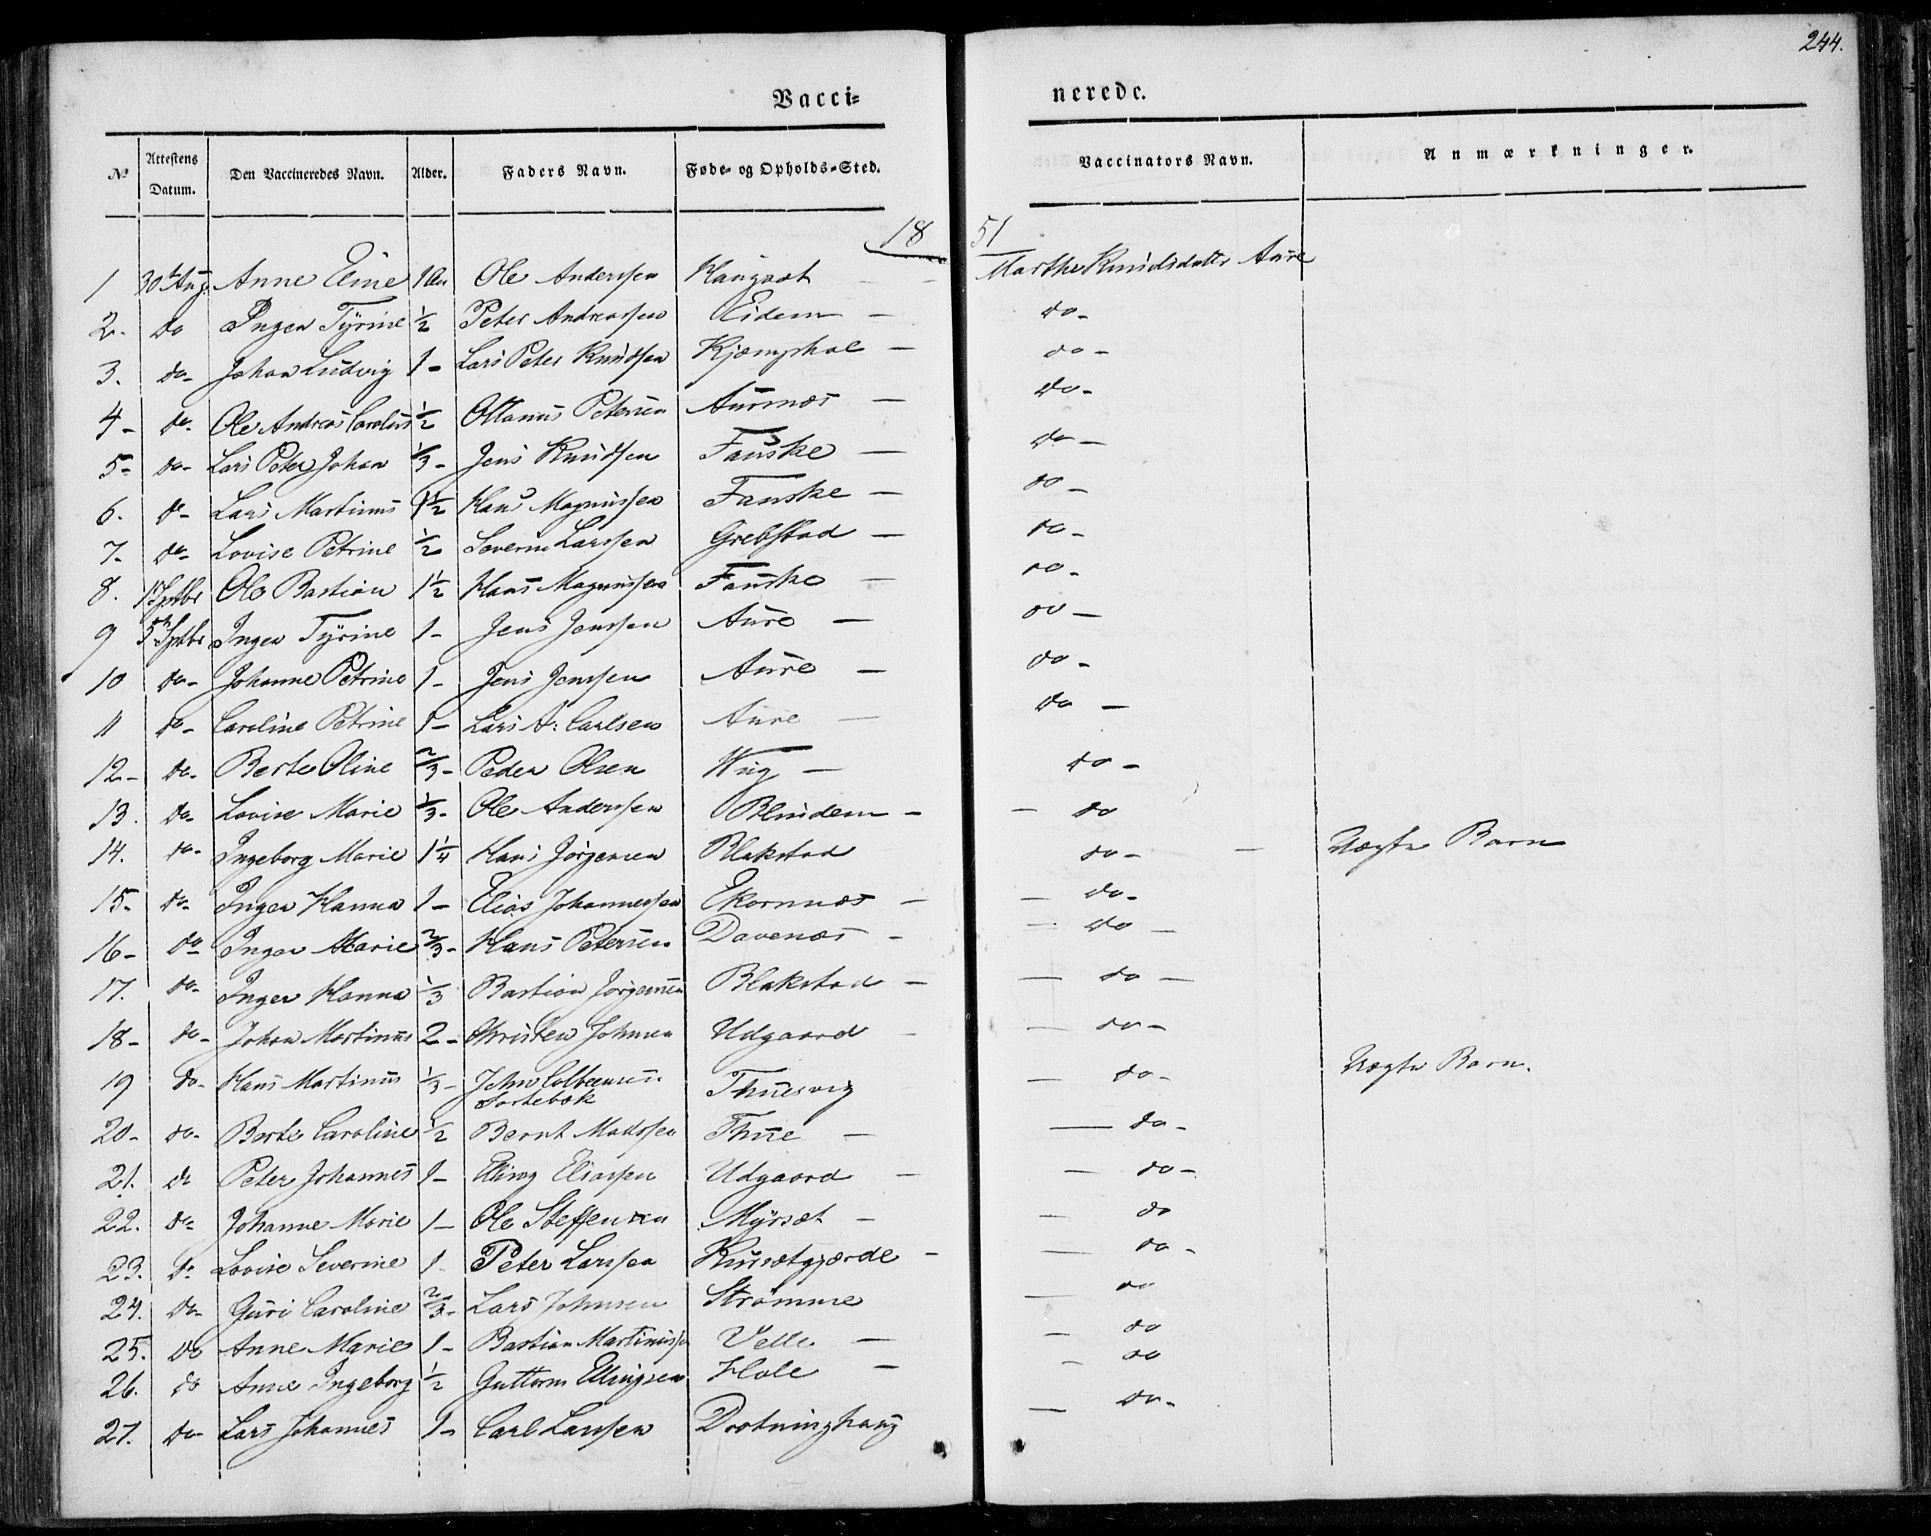 244.
Vacci= nerede.
No Attestens Datum. Den Vaccineredes Navn. Alder. Faders Navn. Føde= og Opholds=Sted. Vaccinators Navn. Anmærkninger.
18 51
1 30t Aug. Anne Eline 1 Ole Anderssen Haugsæt - Marthe Knudsdatter Aure
2. do Inger Tyrine 1/2 Peter Andreassen Eidem - do -
3. do- Johan Ludvig 1 - Lars Peter Knudssen - do -
4 - do. Ole Andreas Carolus 1/2 Ottanus Petersen Aursnæs - do -
5 - do- Lars Peter Johan 1/3 - Jens Knudssen Fauske - do -
6. do- Lars Martinus 1 1/2 Hans Magnussen Fauske - do -
7. do- Lovise Petrine 1/2 Severin Larssen Grebstad - do -
8. 1 Septbr Ole Bastian 1 1/2 Hans Magnussen Fauske - do -
9 5te Septbr Inger Tyrine 1 - Jens Jenssen Aure - do -
10 do- Johanne Petrine 1 - Jens Jenssen Aure - do -
11 do- Caroline Petrine 1 - Lars A: Carlsen Aure - do -
12 - do- Berte Oline 2/3 - Peder Olsen Wiig - do -
13. do- Lovise Marie 1/3 - Ole Anderssen Blindem - - do
14. do- Ingeborg Marie 1 1/4 Hans Jørgensen Blakstad do - - Uægte Barn
15 - do- Inger Hanna 1 - Elias Johannessen Ekornnæs - - do -
16 - do Inger Marie 2/3 - Hans Petersen Davenæs - - do -
17. do- Inger Hanna 1/3 Bastian Jørgensen Blakstad - - do -
18 - do- Johan Martinus 2 - Christen Johnsen Udgaard - - do -
19 do- Hans Martinus 1/3 - John Colbeensen Sortebæk Thuesvig - do - Uægte Barn.
20 - do- Berte Caroline 1/2 Bernt Madssen Thue - - do -
21. do Peter Johannes 1 - Elling Eliassen Udgaard - - do -
22. do Johanne Marie 1 - Ole Steffensen Myrsæt - - do
23. do Lovise Severine 1. Peter Larssen Kursætgjærde - - do -
24. do- Guri Caroline 2/3 - Lars Johnsen Strømme - do
25. do Anne Marie 1 - Bastian Martinussen Velle - - do
26. do Anne Ingeborg 1/2 Guttorm Ellingsen Hole - - do
27. do- Lars Johannes 1 - Carl Larssen Drotninghaug - do -